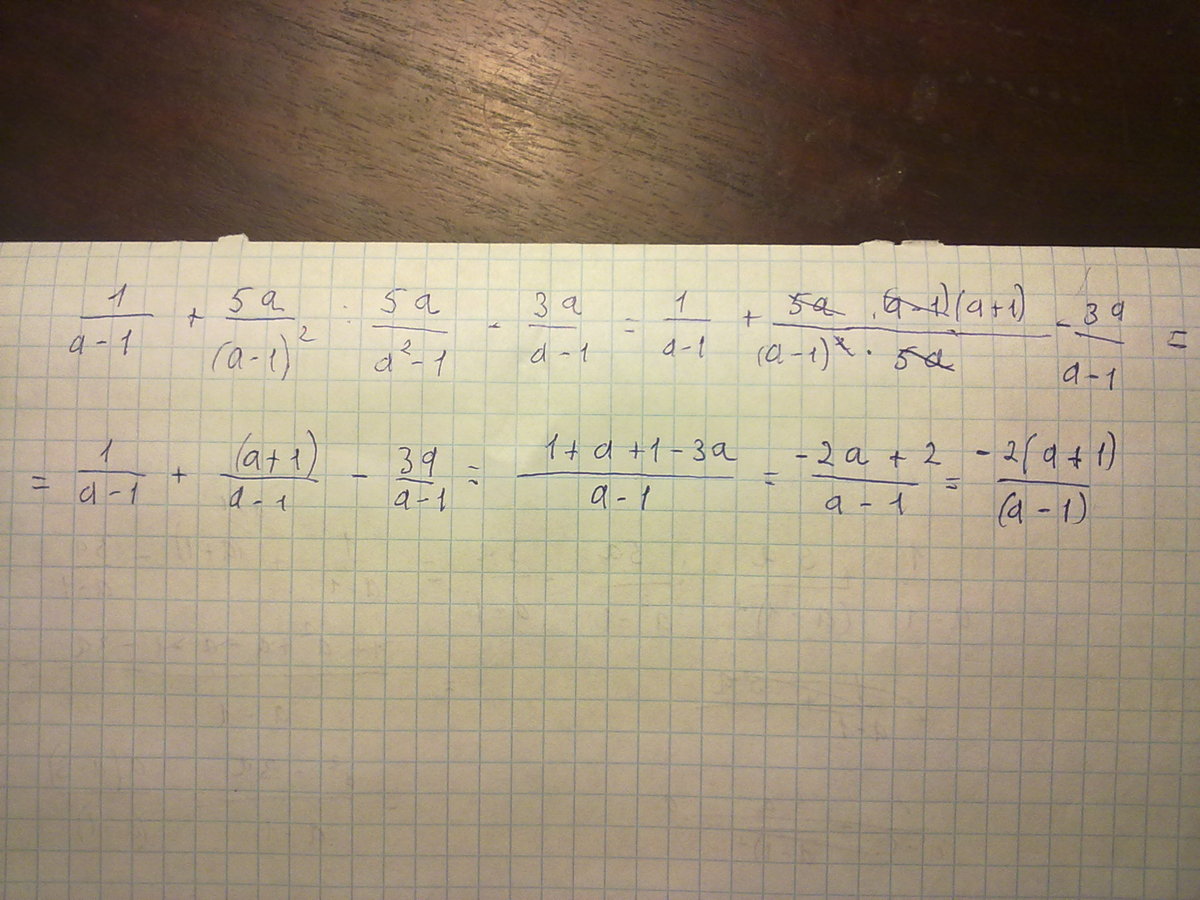 1/(a-1) + 5a/(a-1)² : 5a/(a²-1) - 3a/(a-1) = 1/(a-1) + 5a·(a-1)(a+1)/((a-1)²·5a) - 3a/(a-1) =
= 1/(a-1) + (a+1)/(a-1) - 3a/(a-1) = (1+a+1-3a)/(a-1) = (-2a+2)/(a-1) = -2(a+1)/(a-1)